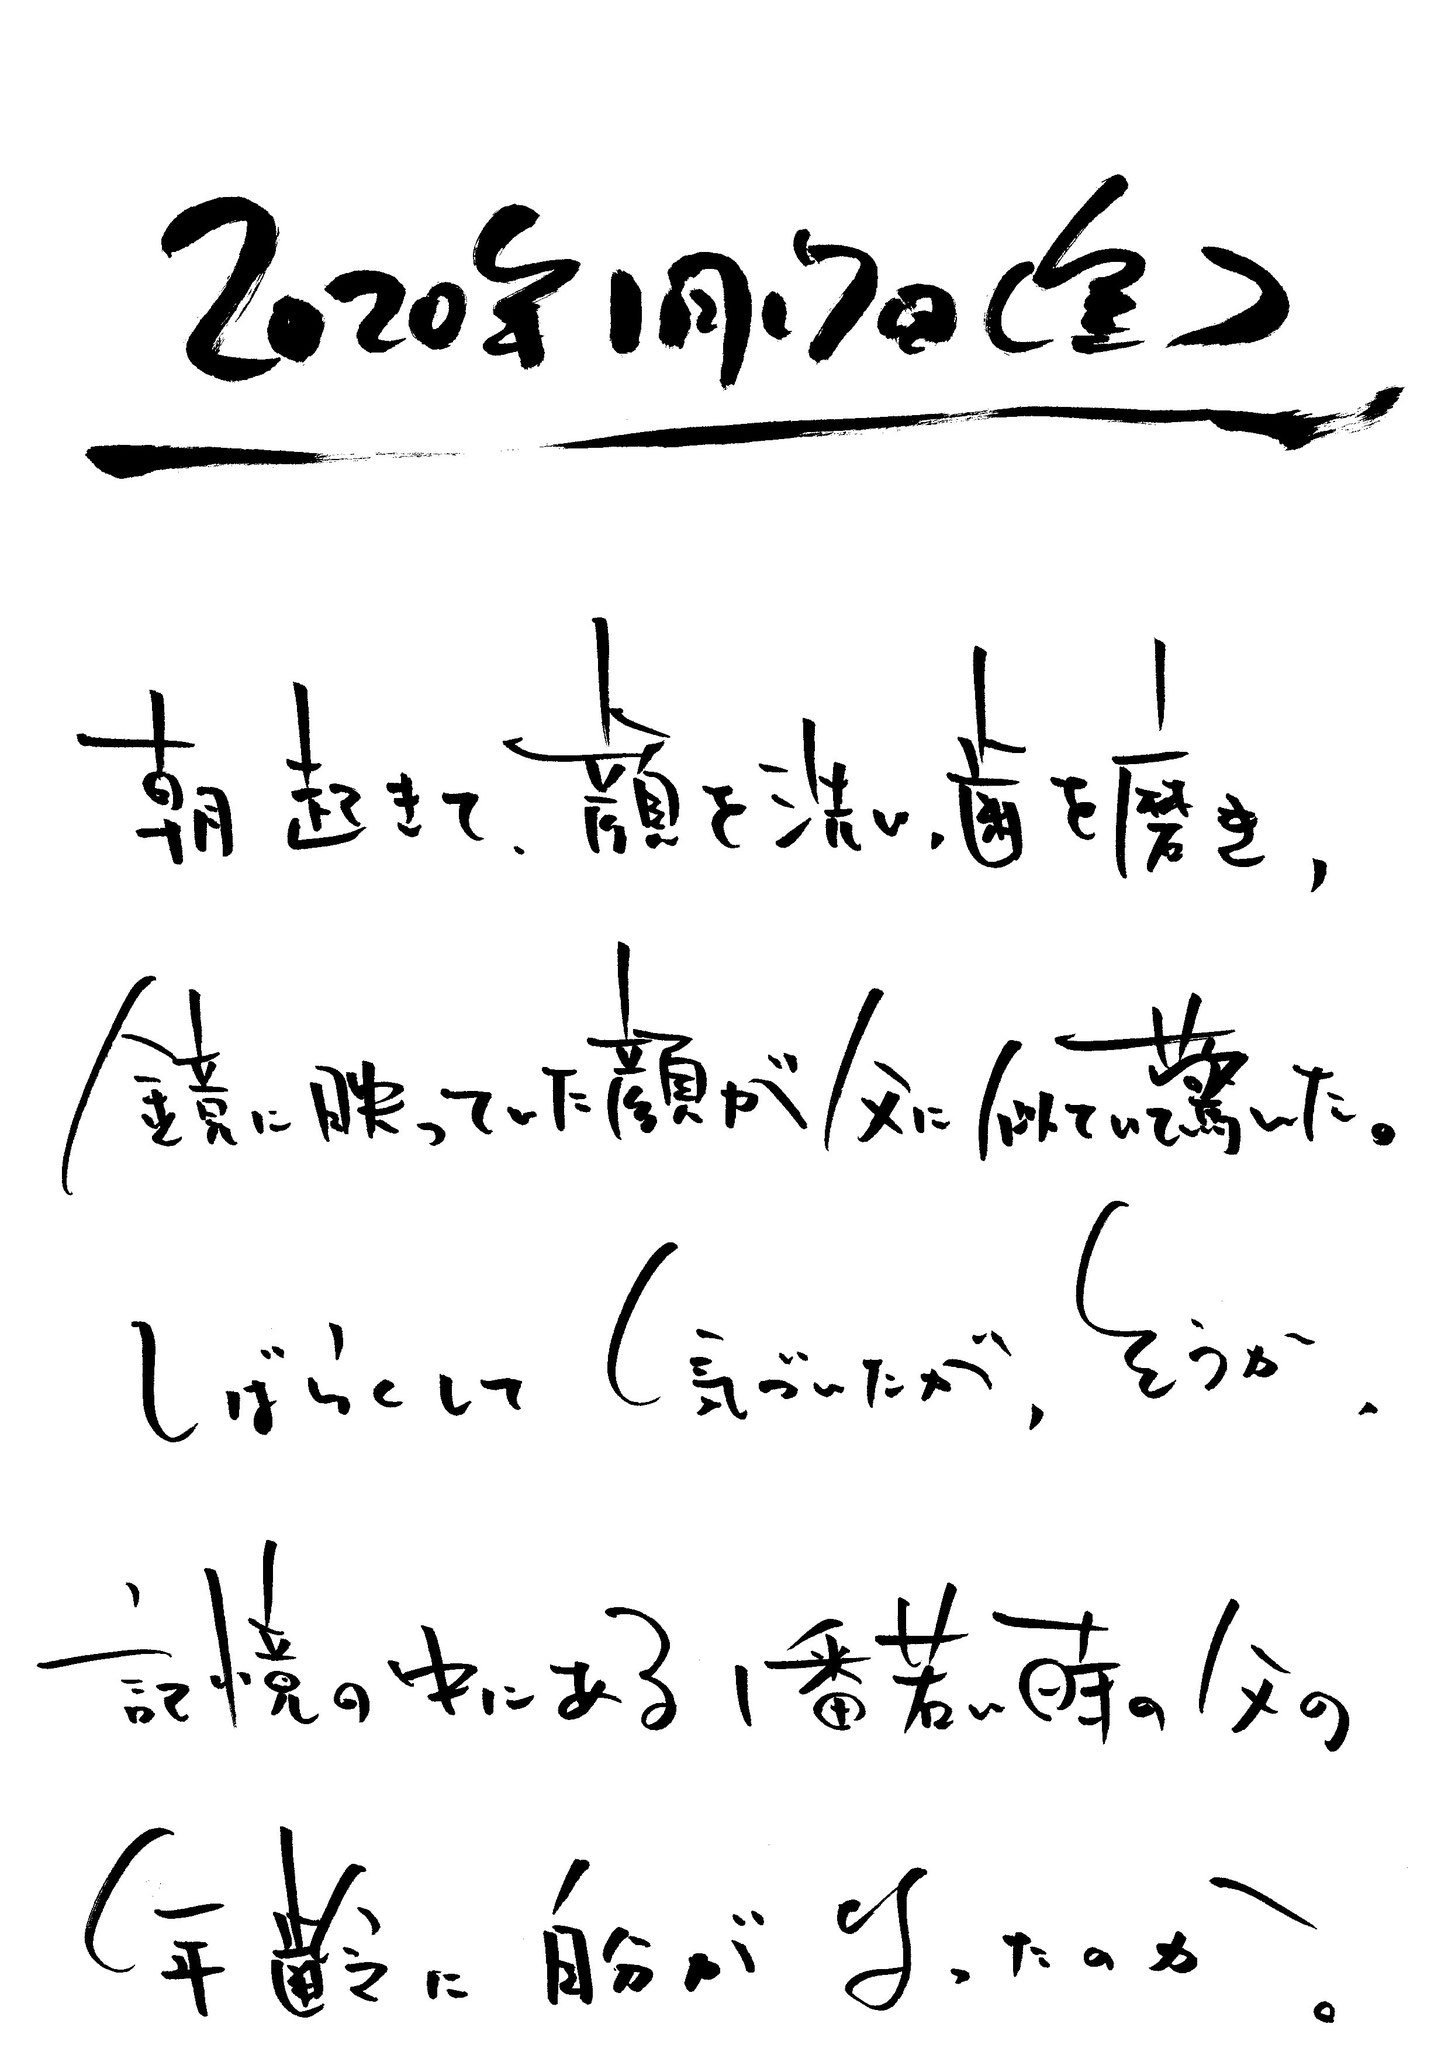 2020年1月17日(金)
朝起きて、顔を洗い、歯を磨き、
鏡に映っていた顔が父に似ていて驚いた。
しばらくして気づいたが、そうか、
記憶の中にある1番若い時の父の
年齢に自分がなったのか。